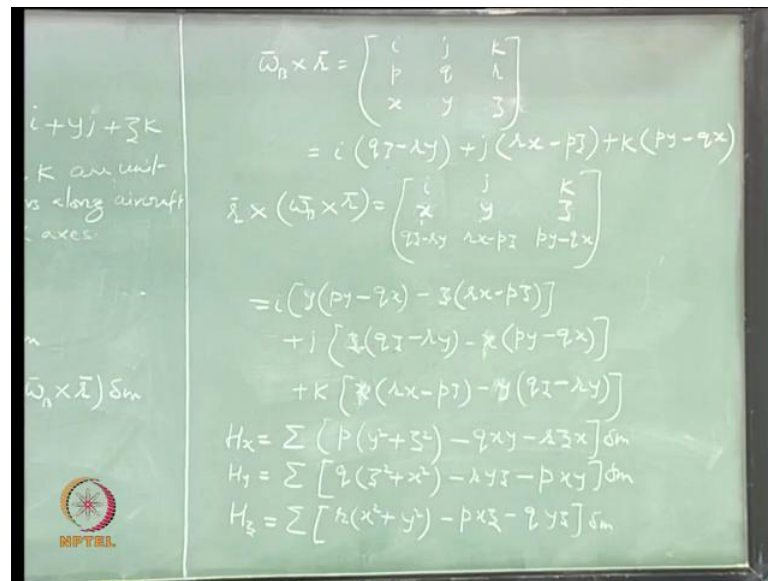 i + yj + zk
K are unit
along aircraft
axes.
ω̄_B × r̄) δm
ω̄_B × r̄ = [ i j k
p q r
x y z ]
= i (qz - ry) + j (rx - pz) + k (py - qx)
r̄ × (ω̄_B × r̄) = [ i j k
x y z
qz-ry rx-pz py-qx ]
= i [y(py - qx) - z(rx - pz)]
+ j [z(qz - ry) - x(py - qx)]
+ k [x(rx - pz) - y(qz - ry)]
Hx = Σ [p(y² + z²) - qxy - rzx] δm
Hy = Σ [q(z² + x²) - ryz - pxy] δm
Hz = Σ [r(x² + y²) - pxz - qyz] δm
NPTEL